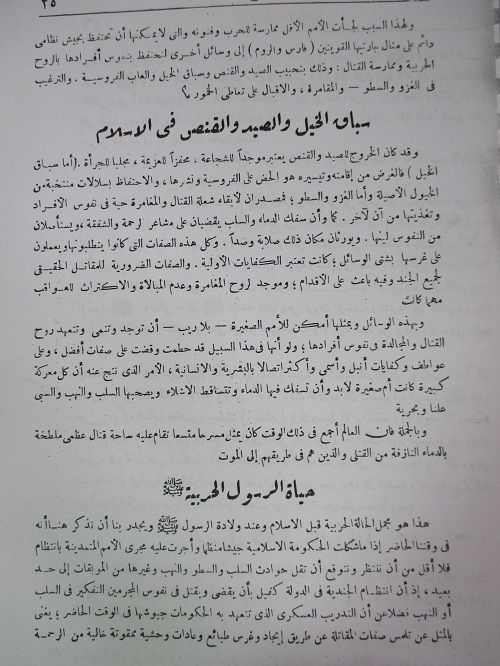 ٢٥
ولهذا السبب لجأت الأمم الأقل ممارسة للحرب وفنونه والتى لايمكنها أن تحتفظ بجيش نظامى
دائم على مثال جارتيها القويتين ( فارس والروم ) إلى وسائل أخرى لتحتفظ بنفوس أفرادها بالروح
الحربية وممارسة القتال : وذلك بتحبيب الصيد والقنص وسباق الخيل والعاب الفروسية . والترغيب
فى الغزو والسطو — والمقامرة ، والاقبال على تعاطى الخمور
سباق الخيل والصيد والقنص فى الاسلام
وقد كان الخروج للصيد والقنص يعتبر موجداً للشجاعة . محفزاً للعزيمة ، مجلبا للجرأة . (أما سباق
الخيل ) فالغرض من إقامته وتيسيره هو الحض على الفروسية ونشرها ، والاحتفاظ بسلالات منتخبة من
الخيول الأصيلة وأما الغزو والسطو ؛ فمصدران لابقاء شعلة القتال والمغامرة حية فى نفوس الأفراد
وتغذيتها من آن لآخر . كما وأن سفك الدماء والسلب يقضيان على مشاعر الرحمة والشفقة ، ويستأصلان
من النفوس لينها . ويورثان مكان ذلك صلابة وصداً . وكل هذه الصفات التى كانوا يتطلبونها ويعملون
على غرسها بشتى الوسائل ؛ كانت تعتبر الكفايات الأولية . والصفات الضرورية للمقاتل الحقيقى
لجميع الجند وفيه باعث على الأقدام ؛ وموجد لروح المغامرة وعدم المبالاة والاكتراث للعواقب
مهما كانت
وبهذه الوسائل وبمثلها أمكن للأمم الصغيرة — بلا ريب — أن توجد وتنمى وتتعهد روح
القتال والمجالدة فى نفوس أفرادها ؛ ولو أنها فى هذا السبيل قد حطمت وقضت على صفات أفضل ؛ وعلى
عواطف وكفايات أنبل وأسمى وأكثر اتصالا بالبشرية والانسانية ، الأمر الذى نتج عنه أن كل معركة
كبيرة كانت أم صغيرة لابد وأن تسفك فيها الدماء وتتساقط الاشلاء ويصحبها السلب والنهب والسبى
علنا وبحرية
وبالجملة فان العالم أجمع فى ذلك الوقت كان يمثل مسرحا متسعا تقام عليه ساحة قتال عظمى ملطخة
بالدماء النازفة من القتلى والذين هم فى طريقهم إلى الموت
حياة الرسول الحربية ﷺ
هذا هو مجمل الحالة الحربية قبل الاسلام وعند ولادة الرسول ﷺ ويجدر بنا أن نذكر هنا أنه
فى وقتنا الحاضر إذا ماشكلت الحكومة الاسلامية جيشا منظما وأجرت عليه مجرى الأمم المتمدينة بانتظام
فلا أقل من أن ننتظر ونتوقع أن تقل حوادث السلب والسطو والنهب وغيرها من الموبقات إلى حد
بعيد ، إذ أن انتظام الجندية فى الدولة كفيل بأن يقضى ويقتل فى نفوس المجرمين التفكير فى السلب
أو النهب فضلا عن أن التدريب العسكرى الذى تتعهد به الحكومات جيوشها فى الوقت الحاضر ؛ يغنى
بالمثل عن تلمس صفات المقاتلة عن طريق إيجاد وغرس طبائع وعادات وحشية ممقوتة خالية من الرحمة